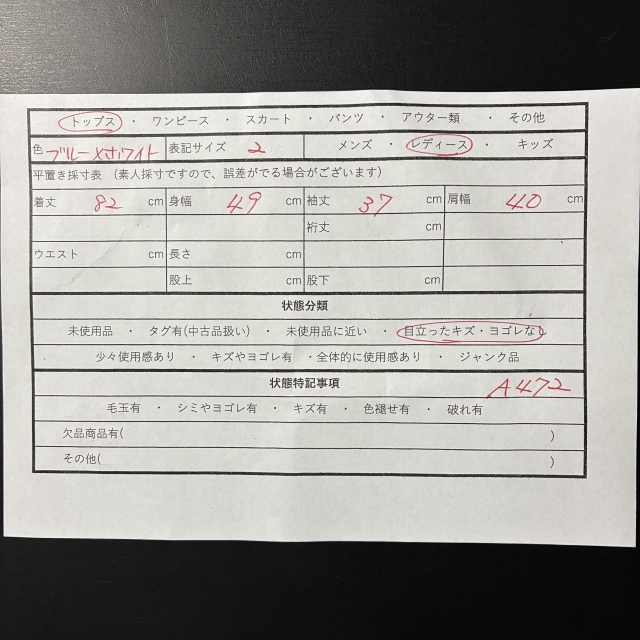 トップス ・ ワンピース ・ スカート ・ パンツ ・ アウター類 ・ その他
色 ブルー×ホワイト 表記サイズ 2 メンズ ・ レディース ・ キッズ
平置き採寸表 (素人採寸ですので、誤差がでる場合がございます)
着丈 82 cm 身幅 49 cm 袖丈 37 cm 肩幅 40 cm
裄丈 cm
ウエスト cm 長さ cm
股上 cm 股下 cm
状態分類
未使用品 ・ タグ有(中古品扱い) ・ 未使用品に近い ・ 目立ったキズ・ヨゴレなし
少々使用感あり ・ キズやヨゴレ有 ・全体的に使用感あり ・ ジャンク品
状態特記事項 A472
毛玉有 ・ シミやヨゴレ有 ・ キズ有 ・ 色褪せ有 ・ 破れ有
欠品商品有( )
その他( )